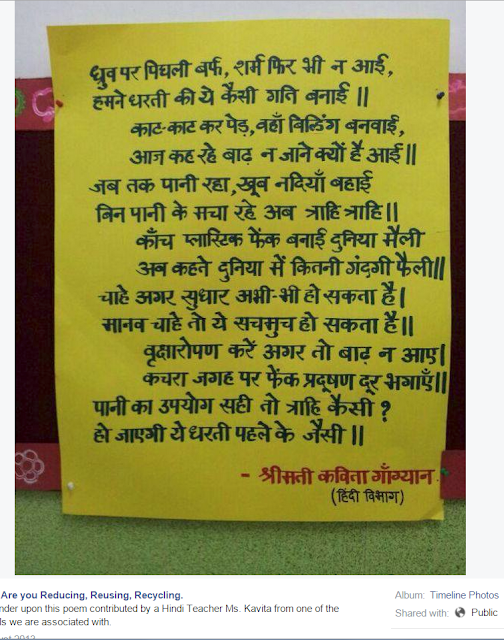 ध्रुव पर पिघली बर्फ, शर्म फिर भी न आई,
हमने धरती की ये कैसी गति बनाई ||
काट-काट कर पेड़, वहाँ बिल्डिंग बनवाई,
आज कह रहे बाढ़ न जाने क्यों है आई ||
जब तक पानी रहा, खूब नदियाँ बहाई
बिन पानी के मचा रहे अब त्राहि त्राहि ||
काँच प्लास्टिक फेंक बनाई दुनिया मैली
अब कहने दुनिया में कितनी गंदगी फैली ||
चाहे अगर सुधार अभी-भी हो सकता है |
मानव चाहे तो ये सचमुच हो सकता है ||
वृक्षारोपण करें अगर तो बाढ़ न आए |
कचरा जगह पर फेंक प्रदूषण दूर भगाएँ ||
पानी का उपयोग सही तो त्राहि कैसी ?
हो जाएगी ये धरती पहले के जैसी ||
- श्रीमती कविता गाँग्यान
(हिंदी विभाग)
Are you Reducing, Reusing, Recycling.
nder upon this poem contributed by a Hindi Teacher Ms. Kavita from one of the
ls we are associated with.
Album: Timeline Photos
Shared with: Public